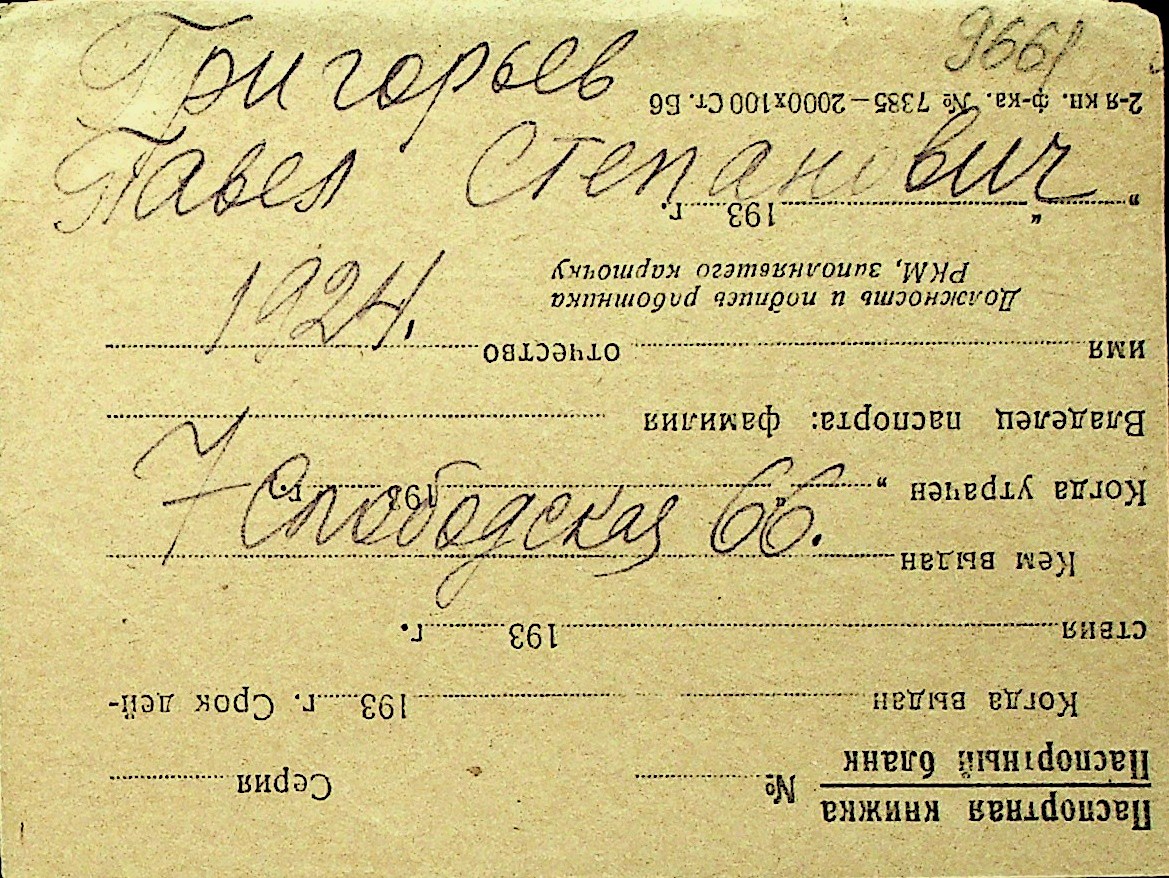 Григорьев
9661
Павел Степанович
1924.
7 Слободская 66.
Паспортная книжка
Паспортный бланк
№ Серия
Когда выдан 193 г. Срок дей-
ствия 193 г.
Кем выдан
Когда утрачен „ “ 193 г.
Владелец паспорта: фамилия
имя отчество
Должность и подпись работника
РКМ, заполнявшего карточку
„ “ 193 г.
2-я кн. ф-ка. № 7385—2000х100 Ст. Б6